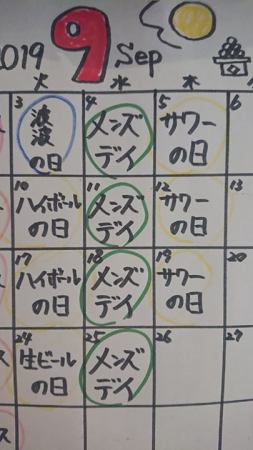 2019 9 Sep
火 水 木
3 4 5 6
の日
メンズ
デイ
サワー
の日
10 11 12 13
ハイボール
の日
メンズ
デイ
サワー
の日
17 18 19 20
ハイボール
の日
メンズ
デイ
サワー
の日
24 25 26 27
生ビール
の日
メンズ
デイ
ス